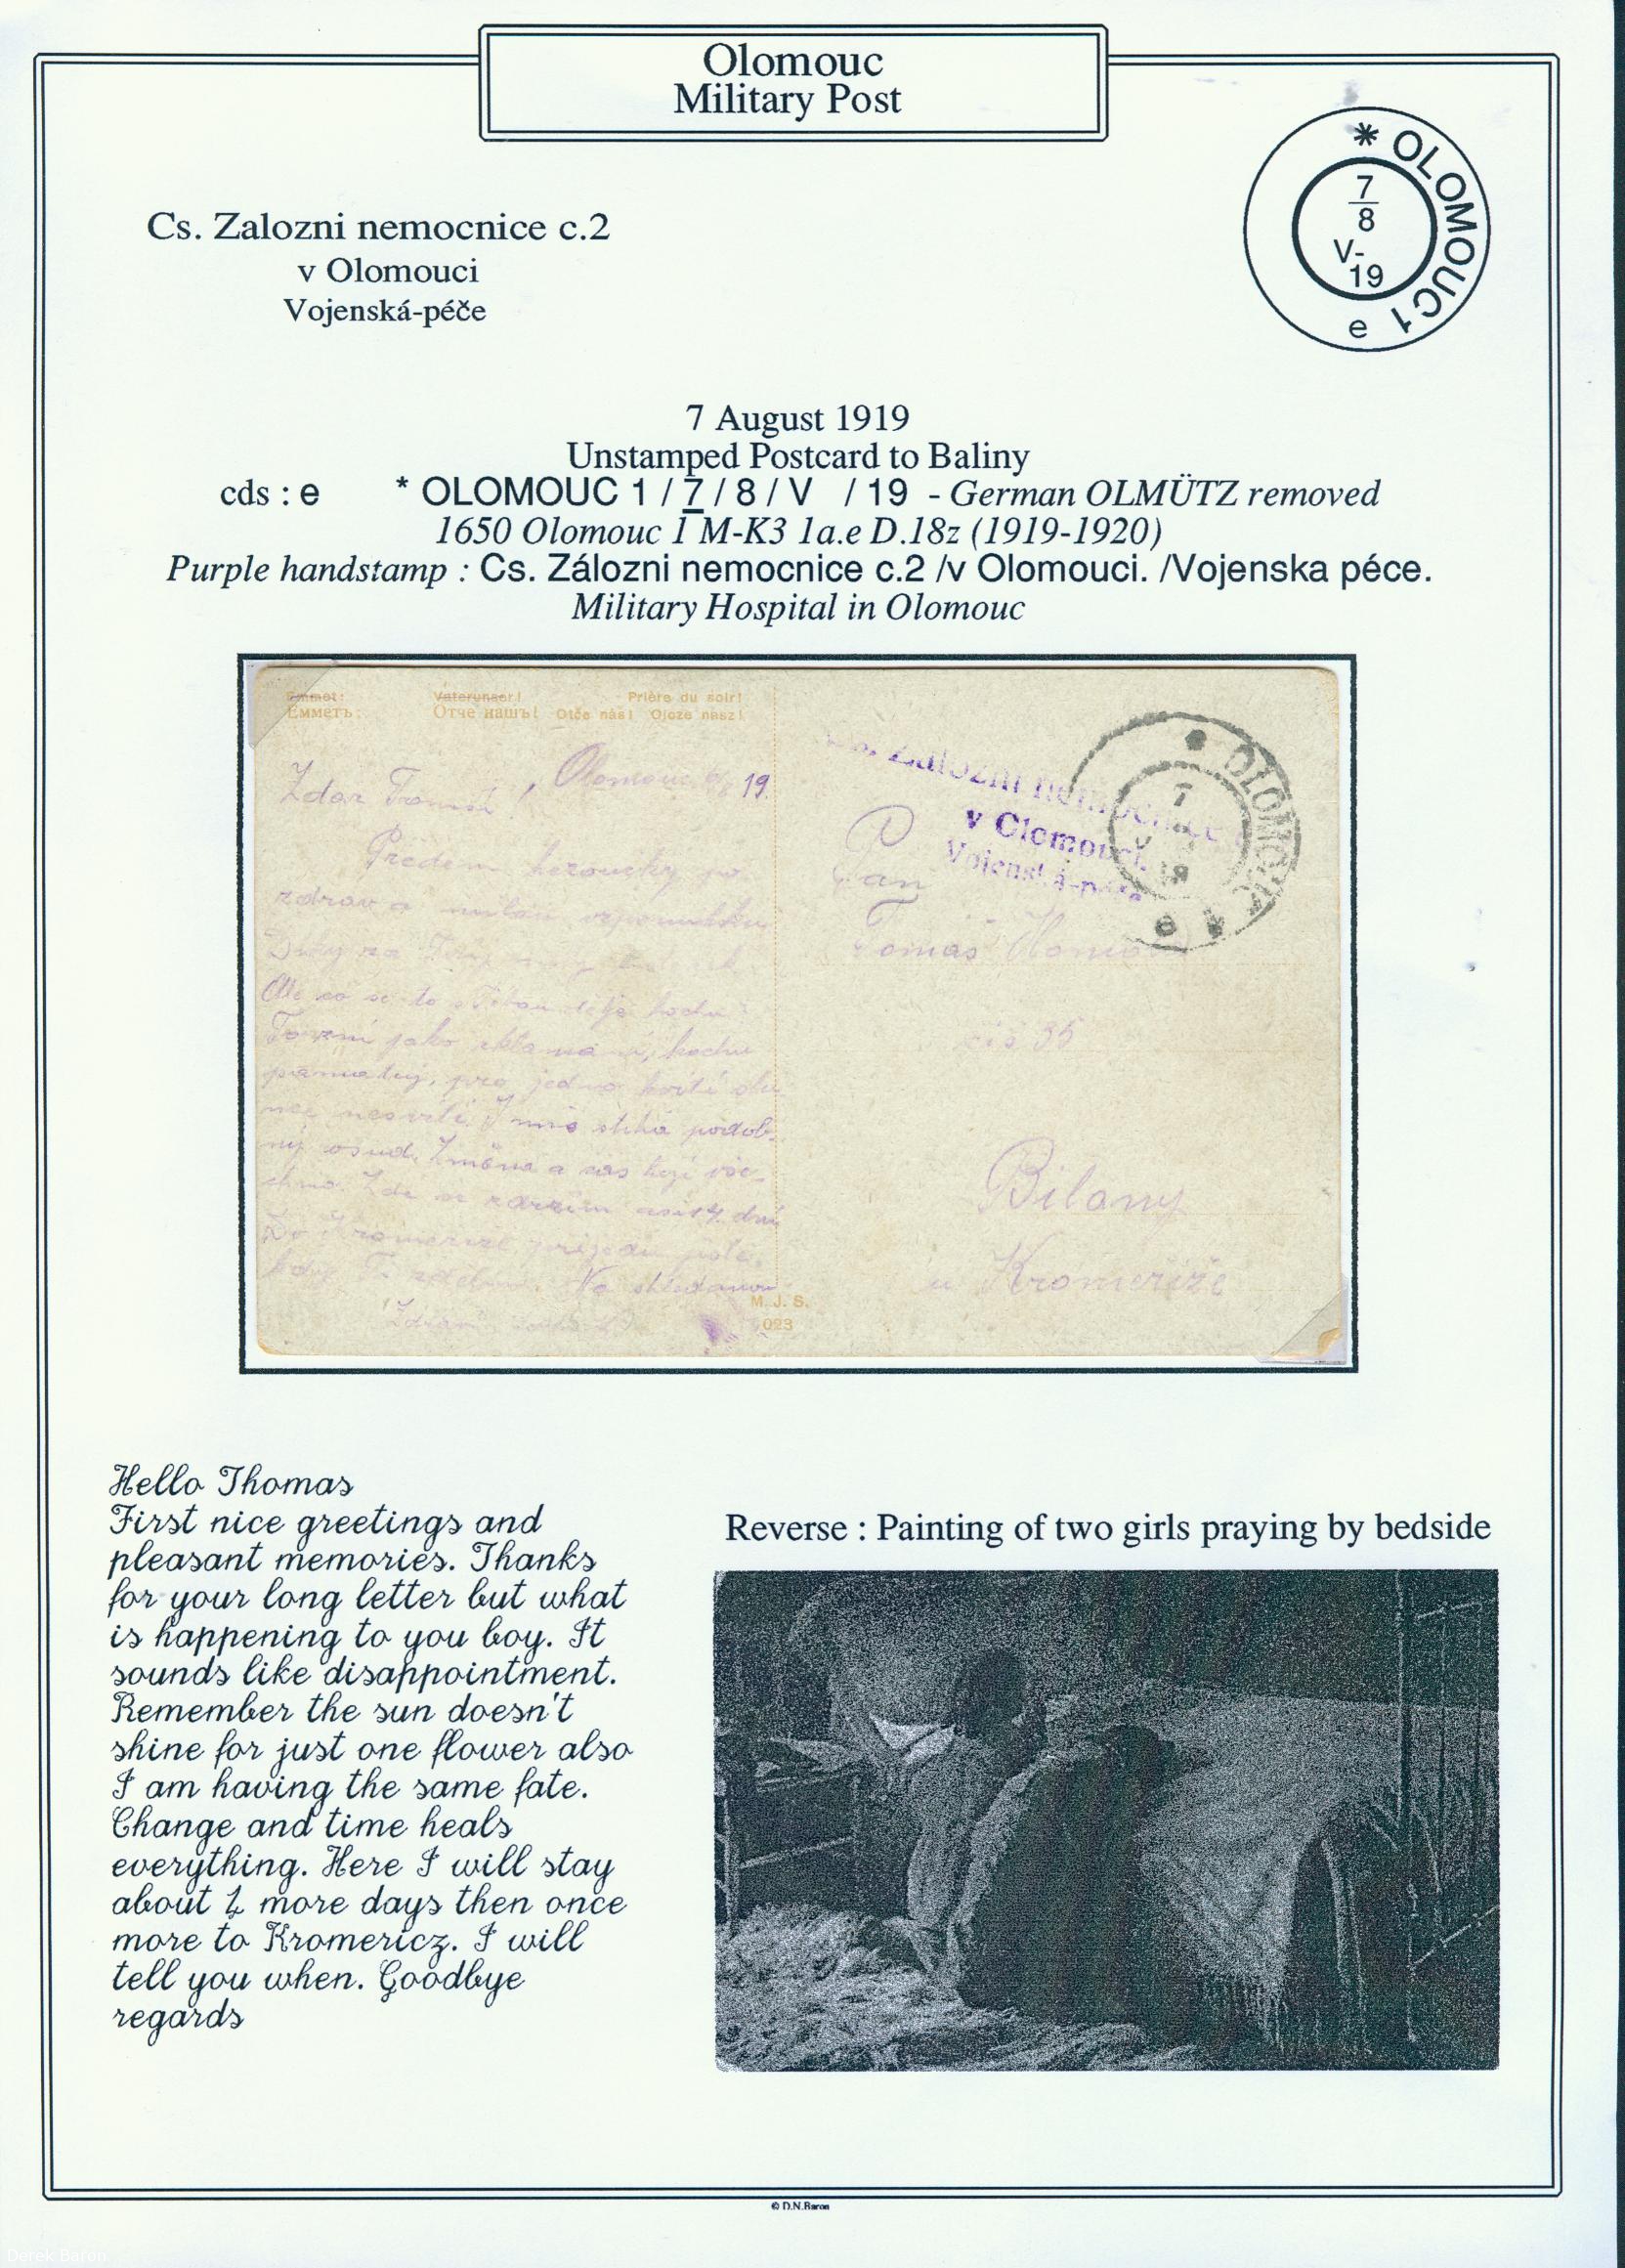 Olomouc
Military Post
* OLOMOUC 1
7
8
V-
19
e
Cs. Zalozni nemocnice c.2
v Olomouci
Vojenská-péče
7 August 1919
Unstamped Postcard to Baliny
cds : e * OLOMOUC 1 / 7 / 8 / V / 19 - German OLMÜTZ removed
1650 Olomouc 1 M-K3 1a.e D.18z (1919-1920)
Purple handstamp : Cs. Zálozni nemocnice c.2 /v Olomouci. /Vojenska péce.
Military Hospital in Olomouc
Emmet: Vaterunser! Prière du soir!
Емметъ: Отче нашъ! Otče náš! Ojcze nasz!
Zdar Olomouc 19.
Předem
zdrav a
jako
památný, pro jedno kvítí slu
nce nesvítí. I mně stihá podob-
ný osud. Změna a čas hojí vše-
chno. Zde se asi 14 dní
Na shledanou
M. J. S.
023
Zalozni nemocnice
v Olomouci.
Vojenská-péče
OLOMOUC 1
7
19
e
Pan
Tomáš
čís 35
Bilany
u Kroměříže
Hello Thomas
First nice greetings and
pleasant memories. Thanks
for your long letter but what
is happening to you boy. It
sounds like disappointment.
Remember the sun doesn't
shine for just one flower also
I am having the same fate.
Change and time heals
everything. Here I will stay
about 4 more days then once
more to Kromericz. I will
tell you when. Goodbye
regards
Reverse : Painting of two girls praying by bedside
© D.N.Baron
Derek Baron